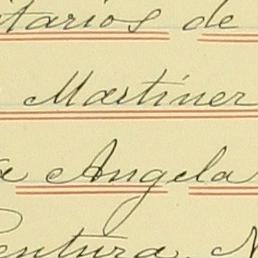 itarios de
Martiner
a Angela
entura, N